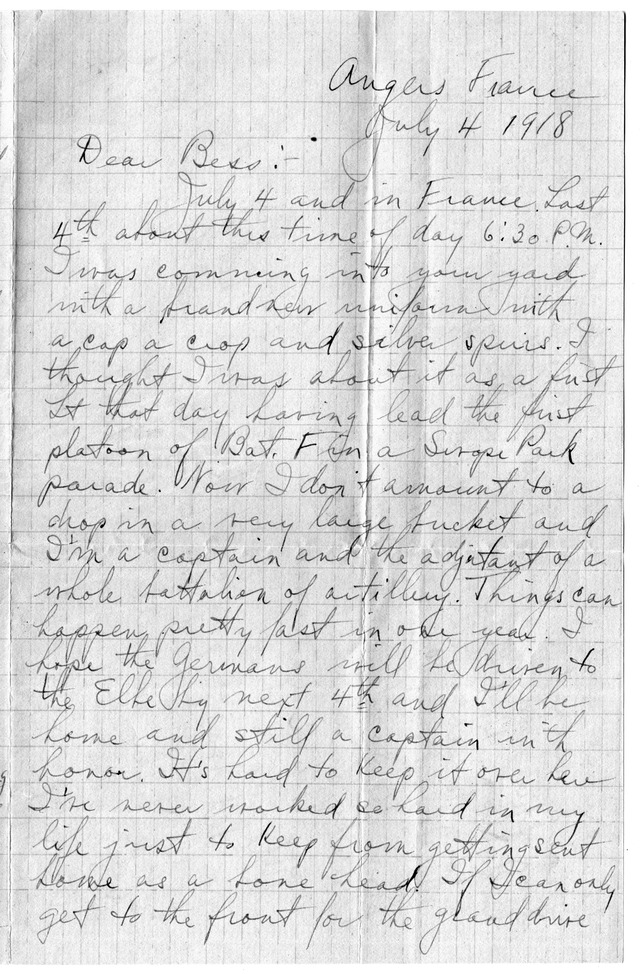 Angers France
July 4 1918
Dear Bess:-
July 4 and in France. Last
4th about this time of day 6:30 P.M.
I was comming into your yard
with a brand new uniform with
a cap a crop and silver spurs. I
thought I was about it as a first
Lt that day having lead the first
platoon of Bat. F in a Swope Park
parade. Now I don't amount to a
drop in a very large bucket and
I'm a captain and the adjutant of a
whole battalion of artillery. Things can
happen pretty fast in one year. I
hope the Germans will be driven to
the Elbe by next 4th and I'll be
home and still a captain with
honor. It's hard to keep it over here
I've never worked so hard in my
life just to keep from getting sent
home as a bone head. If I can only
get to the front for the grand drive